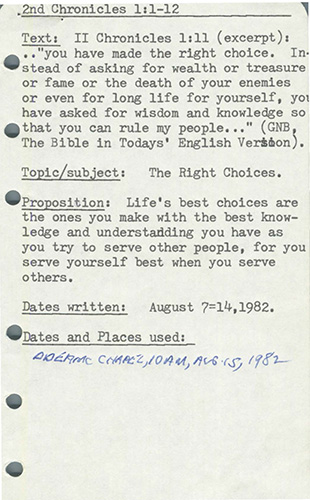 2nd Chronicles 1:1-12
Text: II Chronicles 1:11 (excerpt):
.."you have made the right choice. In-
stead of asking for wealth or treasure
or fame or the death of your enemies
or even for long life for yourself, you
have asked for wisdom and knowledge so
that you can rule my people..." (GNB,
The Bible in Todays' English Version).
Topic/subject: The Right Choices.
Proposition: Life's best choices are
the ones you make with the best know-
ledge and understanding you have as
you try to serve other people, for you
serve yourself best when you serve
others.
Dates written: August 7=14,1982.
Dates and Places used:
10AM, AUG. 15, 1982